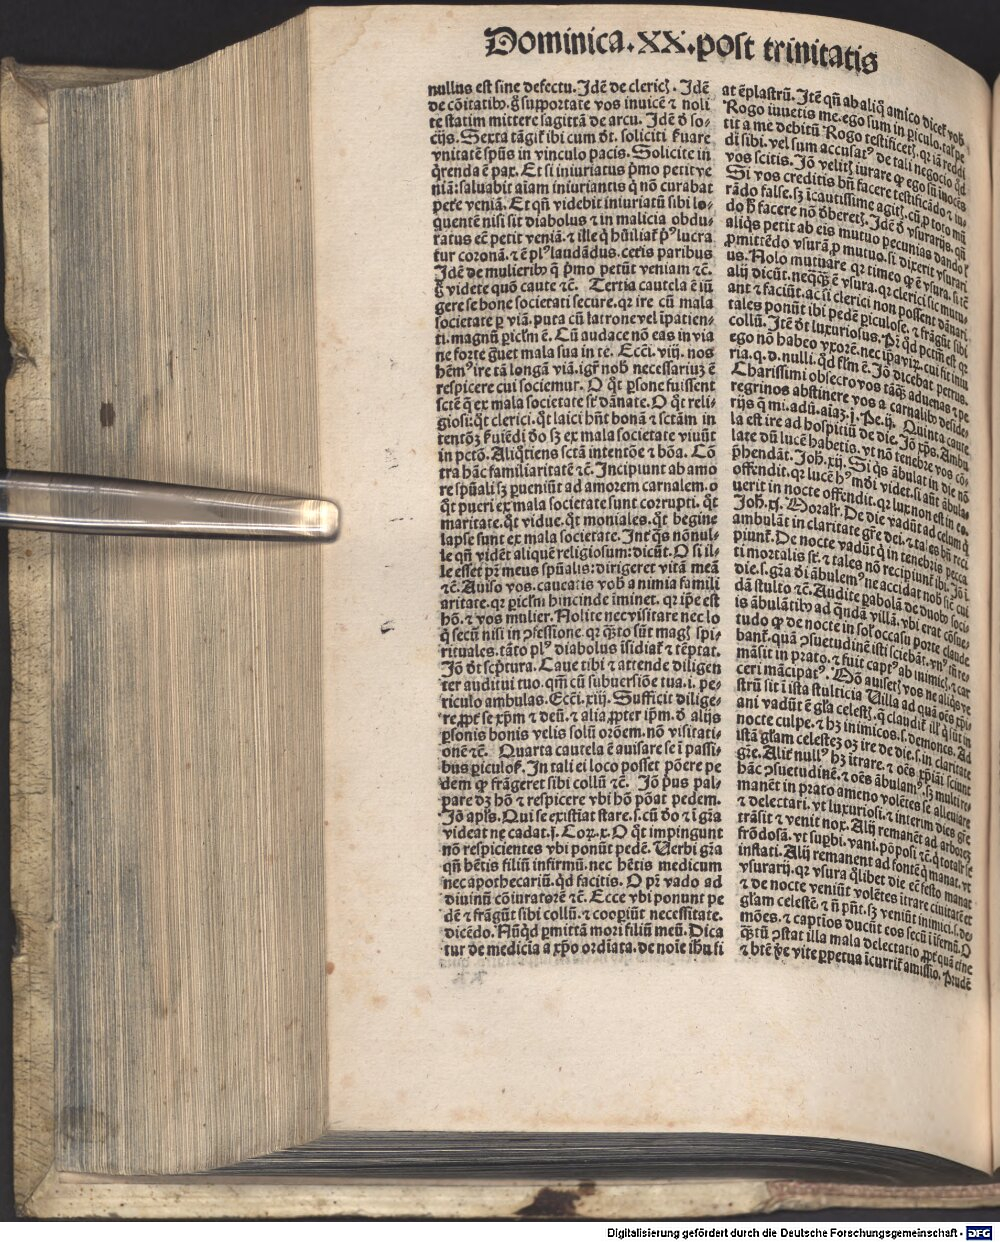 Dominica.XX.post trinitatis
nullus est sine defectu. Idē de clericꝭ. Idē
de cōitatibꝰ. g̊ supportate vos inuicē ⁊ noli
te statim mittere sagittā de arcu. Idē đ so⸗
cijs. Sexta tāgit᷑ ibi cum đt. soliciti ẜuare
vnitatē spūs in vinculo pacis. Solicite in
q̄renda ē pax. Et si iniuriatus pͥmo petit ve
niā: saluabit aīam iniuriantis qͥ nō curabat
petere veniā. Et qn̄ videbit iniuriatū sibi lo⸗
quentē nisi sit diabolus ⁊ in malicia obdu⸗
ratus eē petit veniā. ⁊ ille qͥ hūiliat᷑ pͥꝰ lucra
tur coronā. ⁊ ē plꝰ laudādus. ceteris paribus
Idē de mulieribꝰ q̄ pͥmo petūt veniam ⁊c̄.
g̊ videte quō caute ⁊c̄. Tertia cautela ē iū
gere se bone societati secure. qꝛ ire cū mala
societate ꝑ viā. puta cū latrone vel īpatien⸗
ti. magnū pericl̄m ē. Cū audace nō eas in via
ne forte g̊uet mala sua in te. Ecci. viij. nos
hēmꝰ ire tā longā viā. igit᷑ nob̄ necessariuꝫ ē
respicere cui sociemur. O qͦt ꝑsone fuissent
sctē q̄ ex mala societate st̄ dānate. O qͦt reli⸗
giosi: qͦt clerici. qͦt laici hn̄t bonā ⁊ sctām in
tentōꝫ ẜuiēdi đo sꝫ ex mala societate viuūt
in pctō. Aliqͦtiens sctā intentōe ⁊ bōa. Cō
tra hāc familiaritatē ⁊c̄. Incipiunt ab amo
re spūali sꝫ ꝑueniūt ad amorem carnalem. o
qͦt pueri ex mala societate sunt corrupti. qͦt
maritate. qͦt vidue. qͦt moniales. qͦt begine
lapse sunt ex mala societate. Int᷑ qͣs nōnul⸗
le qn̄ vidēt aliquē religiosum: dicūt. O si il⸗
le esset pr̄ meus spūalis: dirigeret vitā meā
⁊c̄. Auiso vos. caueatis vob̄ a nimia famili
aritate. qꝛ pericl̄m hincinde iminet. qꝛ ip̄e est
hō. ⁊ vos mulier. Nolite nec visitare nec lo
qͥ secū nisi in ꝯfessione. qꝛ qͣto sūt magꝭ spi⸗
rituales. tāto plꝰ diabolus īsidiat᷑ ⁊ tēptat.
Iō đt scp̄tura. Caue tibi ⁊ attende diligen
ter auditui tuo. qm̄ cū subuersiōe tua. i. pe⸗
riculo ambulas. Ecci. xiij. Sufficit dilige⸗
re ꝓpt᷑ se xp̄m ⁊ deū. ⁊ alia ꝓpter ip̄m. đ alijs
ꝑsonis bonis velis solū orōem. nō visitati⸗
onē ⁊c̄. Quarta cautela ē auisare se ī passi⸗
bus ꝑiculosꝭ. In tali ei loco posset pōere pe
dem qꝙ frāgeret sibi collū ⁊c̄. Iō pͥus pal⸗
pare dꝫ hō ⁊ respicere vbi hō pōat pedem.
Iō apl̄s. Qui se existīat stare. s. cū đo ⁊ ī gr̄a
videat ne cadat. j. Cor. x. O qͦt impingunt
nō respicientes vbi ponūt pedē. Uerbi gr̄a
qn̄ hētis filiū infirmū. nec hētis medicum
nec apothecariū. qͥd facitis. O pr̄ vado ad
diuinū cōiuratorē ⁊c̄. Ecce vbi ponunt pe
dē ⁊ frāgūt sibi collū. ⁊ coopiūt necessitate.
dicēdo. Nūqͥd ꝑmittā mori filiū meū. Dica
tur de medicīa a xp̄o ordīata. de noīe ihū si
at ēplastrū. Itē qn̄ ab aliqͦ amico dicet᷑ vob̄.
Rogo iuuetis me. ego sum in ꝑiculo. talꝭ pe
tit a me debitū Rogo testificetꝭ. qꝛ iā reddi
di sibi. vel sum accusatꝰ de tali negocio qͦd
vos scitis. Iō velitꝭ iurare qꝙ ego sū īnocēs
Si vos creditis bn̄ facere testificādo ⁊ iu⸗
rādo false. sꝫ īcautissime agitꝭ. cū ꝑ toto mū
do h̄ facere nō đberetꝭ. Idē đ vsurarijs. qn̄
aliqͥs petit ab eis mutuo pecunias dando l̓
ꝓmittēdo vsurā ꝑ mutuo. si dixerit vsurari
us. Nolo mutuare qꝛ timeo qꝙ ē vsura. si tn̄
alij dicūt. neqͣqͣꝫ ē vsura. qꝛ clerici sic mutu⸗
ant ⁊ faciūt. ac si clerici non possent dānari
tales ponūt ibi pedē ꝑiculose. ⁊ frāgūt sibi
collū. Itē đt luxuriosus. Pr̄ qͥd pctm̄ est qꝛ
ego nō habeo vxorē. nec ip̄a virꝫ. cui fit iniu
ria. q. d. nulli. qͥd fl̄m ē. Iō dicebat petrus.
Charissimi obsecro vos tāqͣꝫ aduenas ⁊ pe
regrinos abstinere vos a carnalibꝰ deside⸗
rijs q̄ mi. adū. aīaꝫ. j. Pe. ij. Quinta caute
la est ire ad hospitiū de die. Iō xp̄s. Ambu
late dū lucē habetis. vt nō tenebre vos cō⸗
p̄hendāt. Joh̄. xij. Si qͥs ābulat in die nō
offendit. qꝛ lucē hꝰ mōi videt. si aūt ābula⸗
uerit in nocte offendit. qꝛ lux non est in eo.
Joh̄. xj. Moralr̄. De die vadūt ad celum qͥ
ambulāt in claritate gr̄e dei. ⁊ tales bn̄ reci
piunt᷑. De nocte vadūt qͥ in tenebris pecca
ti mortalis st̄. ⁊ tales nō recipiunt᷑ ibi. Iō ī
die. s. gr̄a đi ābulemꝰ ne accidat nob̄ sic̄ cui
dā stulto ⁊c̄. Audite ꝑabolā de duobꝰ soci⸗
is ābulātibꝰ ad qͣndā villā. vbi erat cōsue⸗
tudo qꝙ de nocte in solꝭ occasu porte claude
bant᷑. quā ꝯsuetudinē isti sciebāt. vnꝰ tn̄ re⸗
māsit in prato. ⁊ fuit captꝰ ab inimicꝭ. ⁊ car
ceri mācipatꝰ. Mō auisetꝭ vos ne aliqͥs ve
strū sit ī ista stulticia Uilla ad quā oēs xp̄i⸗
ani vadūt ē gl̄a celestꝭ. q̄ claudit᷑ illꝭ qͥ sūt in
nocte culpe. ⁊ hꝫ inimicos. s. demones. Ad
istā gl̄am celesteꝫ oꝫ ire de die. s. in claritate
gr̄e. Alit᷑ nullꝰ hꝫ ītrare. ⁊ oēs xp̄iāi sciunt
hāc ꝯsuetudinē. ⁊ oēs ābulamꝰ. sꝫ multi re⸗
manēt in prato ameno volētes se alleuiare
⁊ delectari. vt luxuriosi. ⁊ interim dies gr̄e
trāsit ⁊ venit nox. Alij remanēt ad arboreꝫ
frōdosā. vt suꝑbi. vani. pōposi ⁊c̄. qͥ totalr̄ sē
inflati. Alij remanent ad fontē qͥ manat. vt
vsurarij. qꝛ vsura qͣlibet die eē festo manat
⁊ de nocte veniūt volētes ītrare ciuitatē et
gl̄am celestē. ⁊ n̄ pn̄t. sꝫ veniūt inimici. s. de⸗
mōes. ⁊ captios ducūt eos secū ī īfernū. O
qͣꝫtū ꝯstat illa mala delectatio ꝓpt᷑ quā et̄ne
⁊ btē v̄e vite ꝑpetua īcurrit᷑ amissio. Prudē
Digitalisierung gefördert durch die Deutsche Forschungsgemeinschaft - DFG